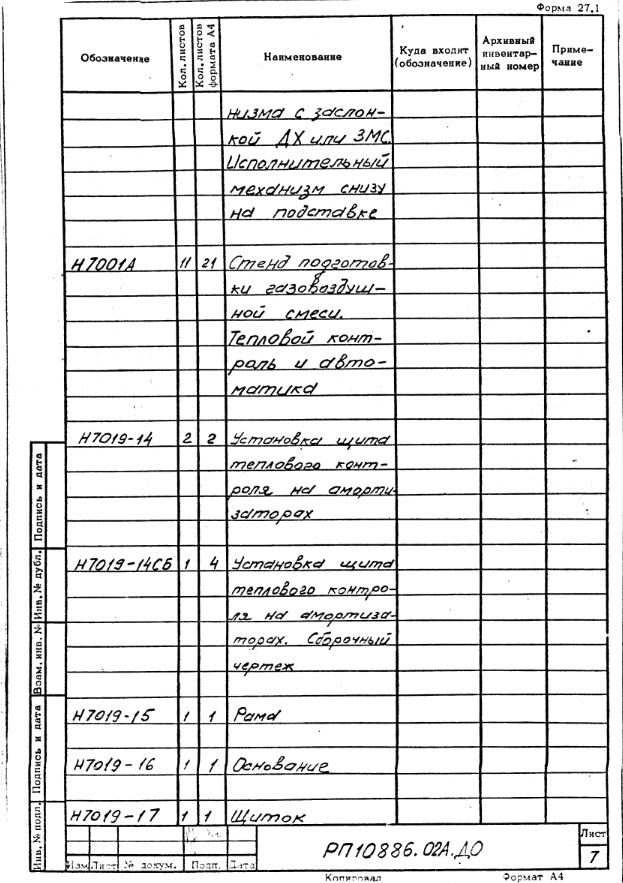 Форма 27.1
Обозначение Кол. листов Кол. листов формата А4 Наименование Куда входит (обозначение) Архивный инвентарный номер Примечание
низма с заслон-
кой ДХ или ЗМС.
Исполнительный
механизм снизу
на подставке
Н7001А 11 21 Стенд подготов-
ки газовоздуш-
ной смеси.
Тепловой конт-
роль и авто-
матика
Н7019-14 2 2 Установка щита
теплового конт-
роля на аморти-
заторах
Н7019-14СБ 1 4 Установка щита
теплового контро-
ля на амортиза-
торах. Сборочный
чертеж
Н7019-15 1 1 Рама
Н7019-16 1 1 Основание
Н7019-17 1 1 Щиток
Инв. № подл. Подпись и дата Взам. инв. № Инв. № дубл. Подпись и дата
Изм Лист № докум. Подп. Дата
РП10886.02А.ДО
Лист
7
Копировал Формат А4